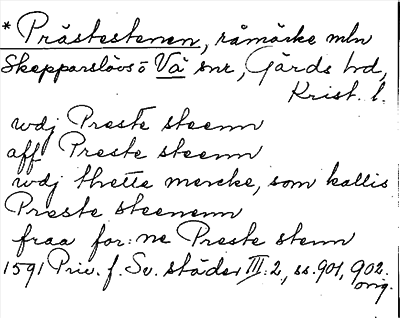 * Prästestenen, råmärke mln
Skepparslövs o Vä snr, Gärds hd,
Krist. l.
wdj Preste steenn
aff Preste steenn
wdj thette mercke, som kallis
Preste steenenn
fraa for: ne Preste stenn
1591 Priv. f. Sv. städer III: 2, ss. 901, 902.
orig.